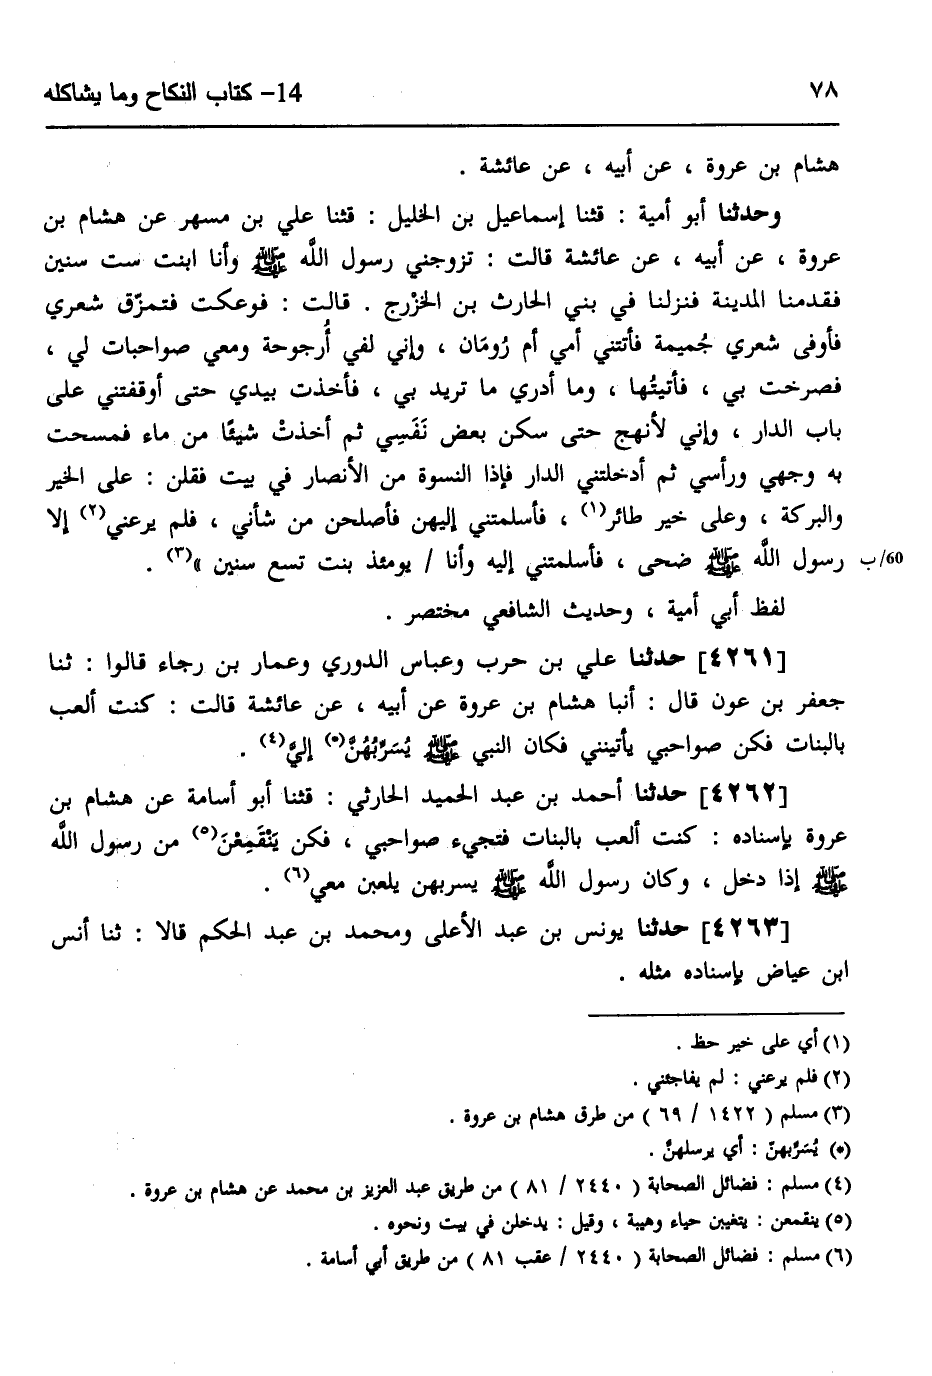 ٧٨
14- كتاب النكاح وما يشاكله
هشام بن عروة ، عن أبيه ، عن عائشة .
وحدثنا أبو أمية : قثنا إسماعيل بن الخليل : قثنا علي بن مسهر عن هشام بن
عروة ، عن أبيه ، عن عائشة قالت : تزوجني رسول اللَّه ﷺ وأنا ابنت ست سنين
فقدمنا المدينة فنزلنا في بني الحارث بن الخزْرج . قالت : فوعكت فتمزّق شعري
فأوفى شعري جُميمة فأتتني أمي أم رُومَان ، وإني لفي أُرجوحة ومعي صواحبات لي ،
فصرخت بي ، فأتيتُها ، وما أدري ما تريد بي ، فأخذت بيدي حتى أوقفتني على
باب الدار ، وإني لأنهج حتى سكن بعض نَفَسِي ثم أخذتْ شيئًا من ماء فمسحت
به وجهي ورأسي ثم أدخلتني الدار فإذا النسوة من الأنصار في بيت فقلن : على الخير
والبركة ، وعلى خير طائر(١) ، فأسلمتني إليهن فأصلحن من شأني ، فلم يرعني(٢) إلا
رسول اللَّه ﷺ ضحى ، فأسلمتني إليه وأنا / يومئذ بنت تسع سنين »(٣) .
60/ب
لفظ أبي أمية ، وحديث الشافعي مختصر .
[٤٢٦١] حدثنا علي بن حرب وعباس الدوري وعمار بن رجاء قالوا : ثنا
جعفر بن عون قال : أنبا هشام بن عروة عن أبيه ، عن عائشة قالت : كنت ألعب
بالبنات فكن صواحبي يأتينني فكان النبي ﷺ يُسَرِّبُهُنَّ(*) إليَّ(٤) .
[٤٢٦٢] حدثنا أحمد بن عبد الحميد الحارثي : قثنا أبو أسامة عن هشام بن
عروة بإسناده : كنت ألعب بالبنات فتجيء صواحبي ، فكن يَنْقَمِعْنَ(٥) من رسول اللَّه
ﷺ إذا دخل ، وكان رسول اللَّه ﷺ يسربهن يلعبن معي(٦) .
[٤٢٦٣] حدثنا يونس بن عبد الأعلى ومحمد بن عبد الحكم قالا : ثنا أنس
ابن عياض بإسناده مثله .
(١) أي على خير حظ .
(٢) فلم يرعني : لم يفاجئني .
(٣) مسلم ( ١٤٢٢ / ٦٩ ) من طرق هشام بن عروة .
(*) يُسَرِّبهنّ : أي يرسلهنَّ .
(٤) مسلم : فضائل الصحابة ( ٢٤٤٠ / ٨١ ) من طريق عبد العزيز بن محمد عن هشام بن عروة .
(٥) ينقمعن : يتغيبن حياء وهيبة ، وقيل : يدخلن في بيت ونحوه .
(٦) مسلم : فضائل الصحابة ( ٢٤٤٠ / عقب ٨١ ) من طريق أبي أسامة .